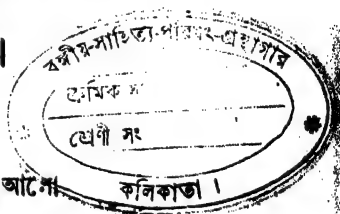 বঙ্গীয়-সাহিত্য-পরিষৎ-গ্রন্থাগার
ক্রমিক সং
শ্রেণী সং
আলো
কলিকাতা ।